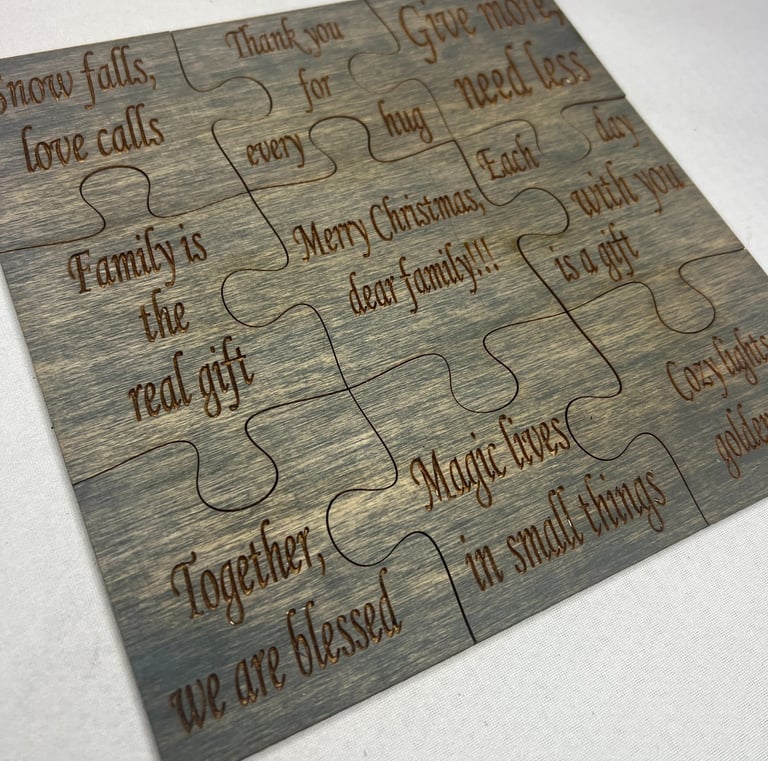 Snow falls,
love calls
Thank you
for
every hug
Give more,
need less
Family is
the
real gift
Merry Christmas,
dear family!!!
Each day
with you
is a gift
Together,
we are blessed
Magic lives
in small things
Cozy lights
golden